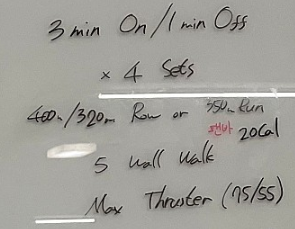 3 min On / 1 min Off
× 4 Sets
400m/320m Row or 350m Run
20Cal
5 Wall Walk
Max Thruster (75/55)